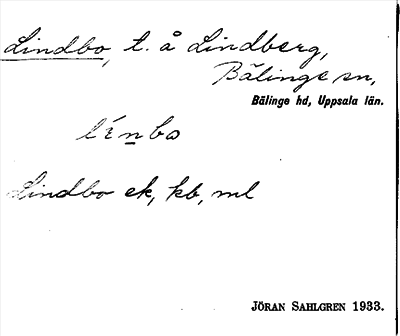 Lindbo, t. å Lindberg,
Bälinge sn,
Bälinge hd, Uppsala län.
línbo
Lindbo ek, kb, ml
JÖRAN SAHLGREN 1933.